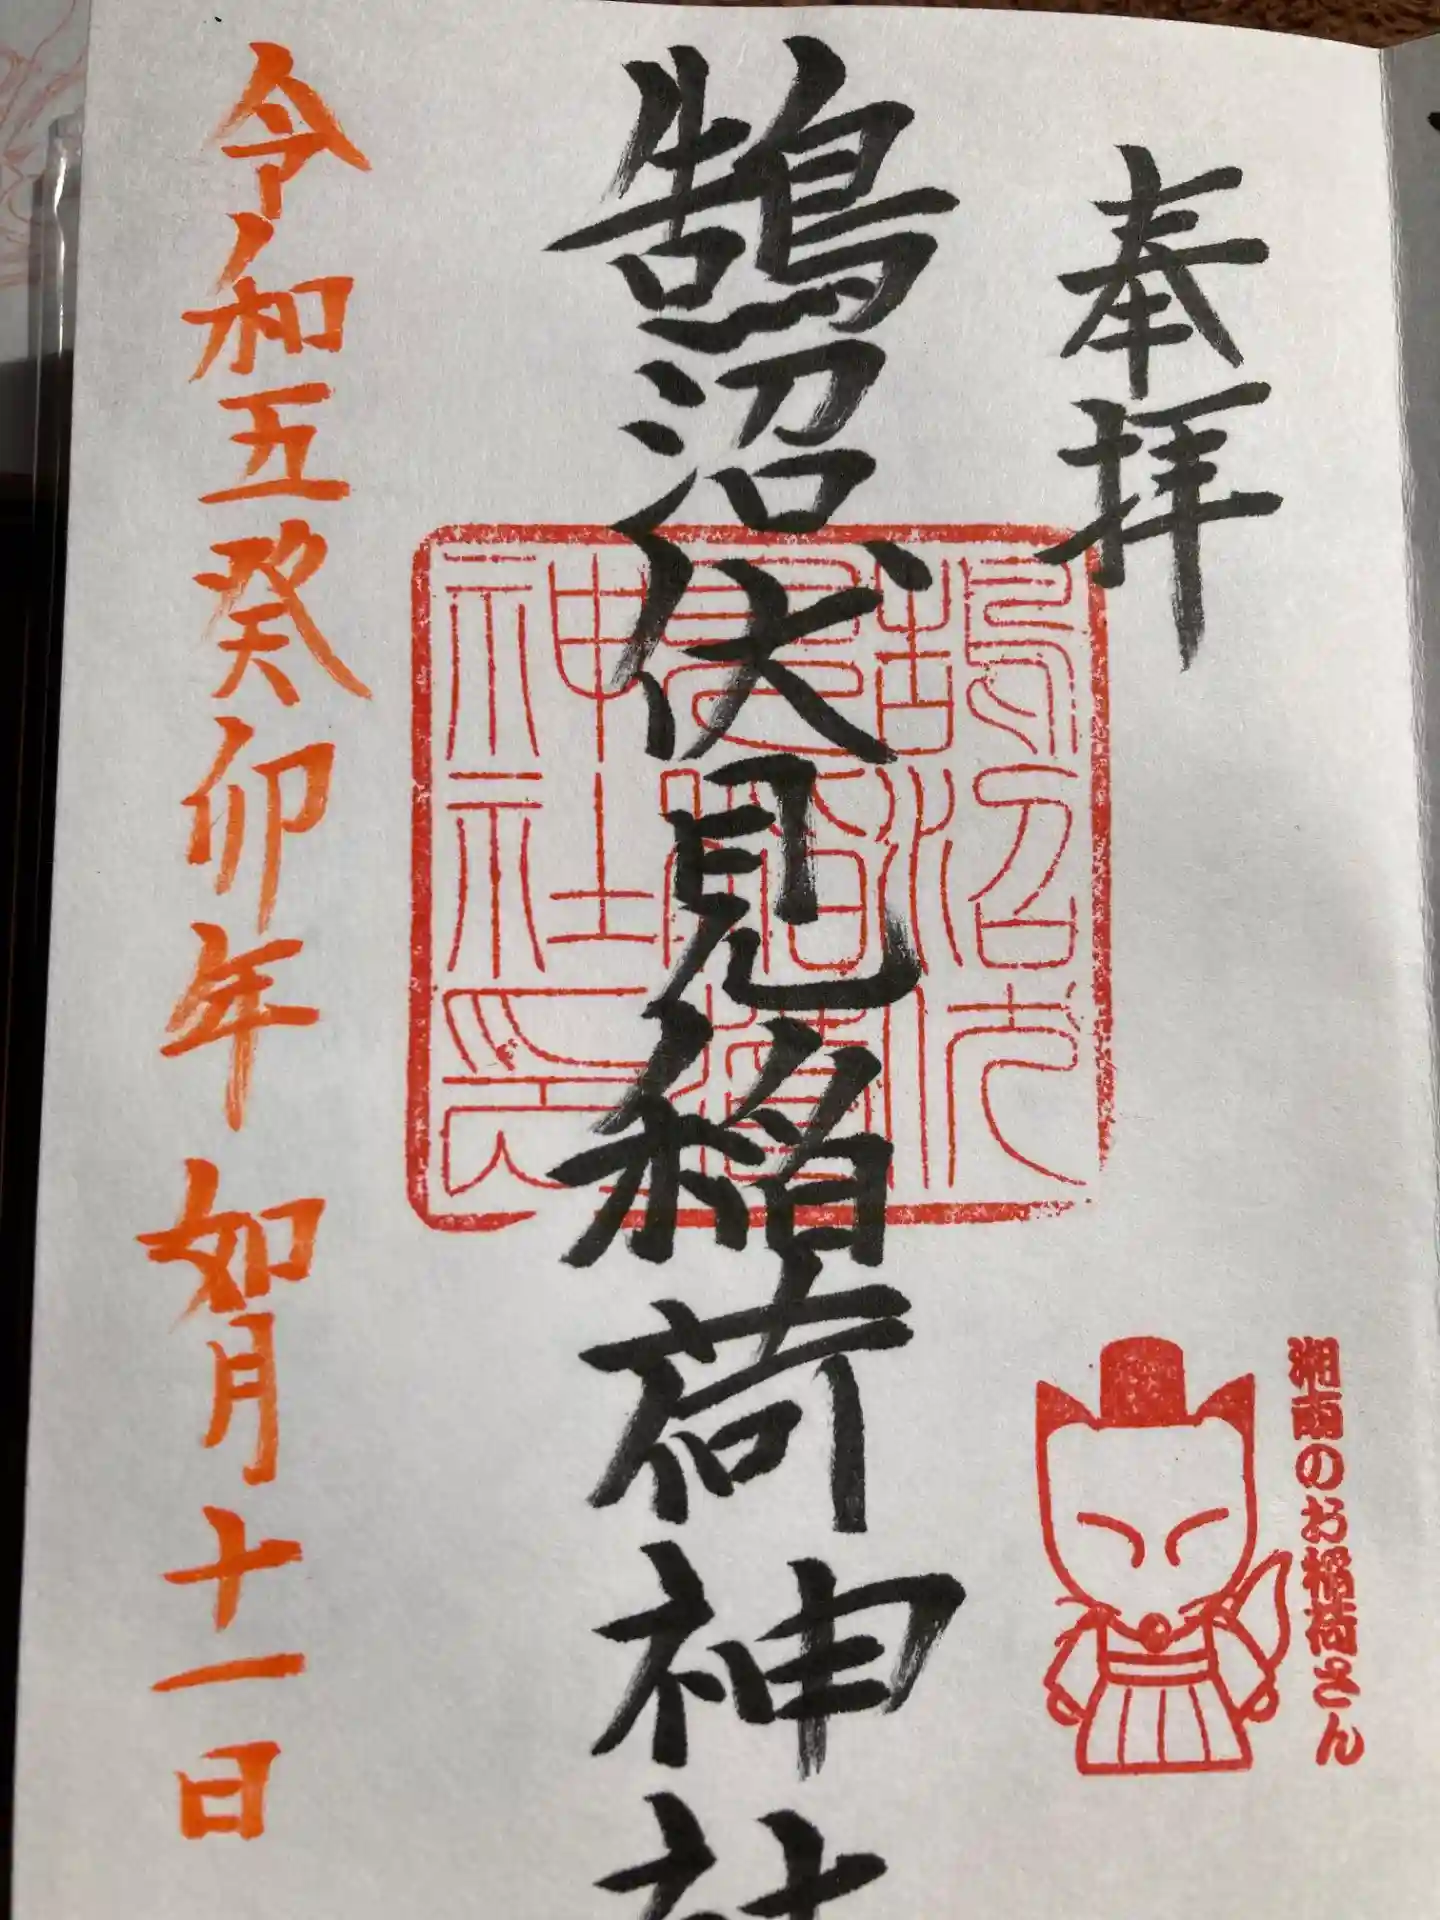 奉拝
鵠沼伏見稲荷神社
鵠沼伏
見稲荷
神社印
令和五癸卯年 如月十一日
湘南のお稲荷さん